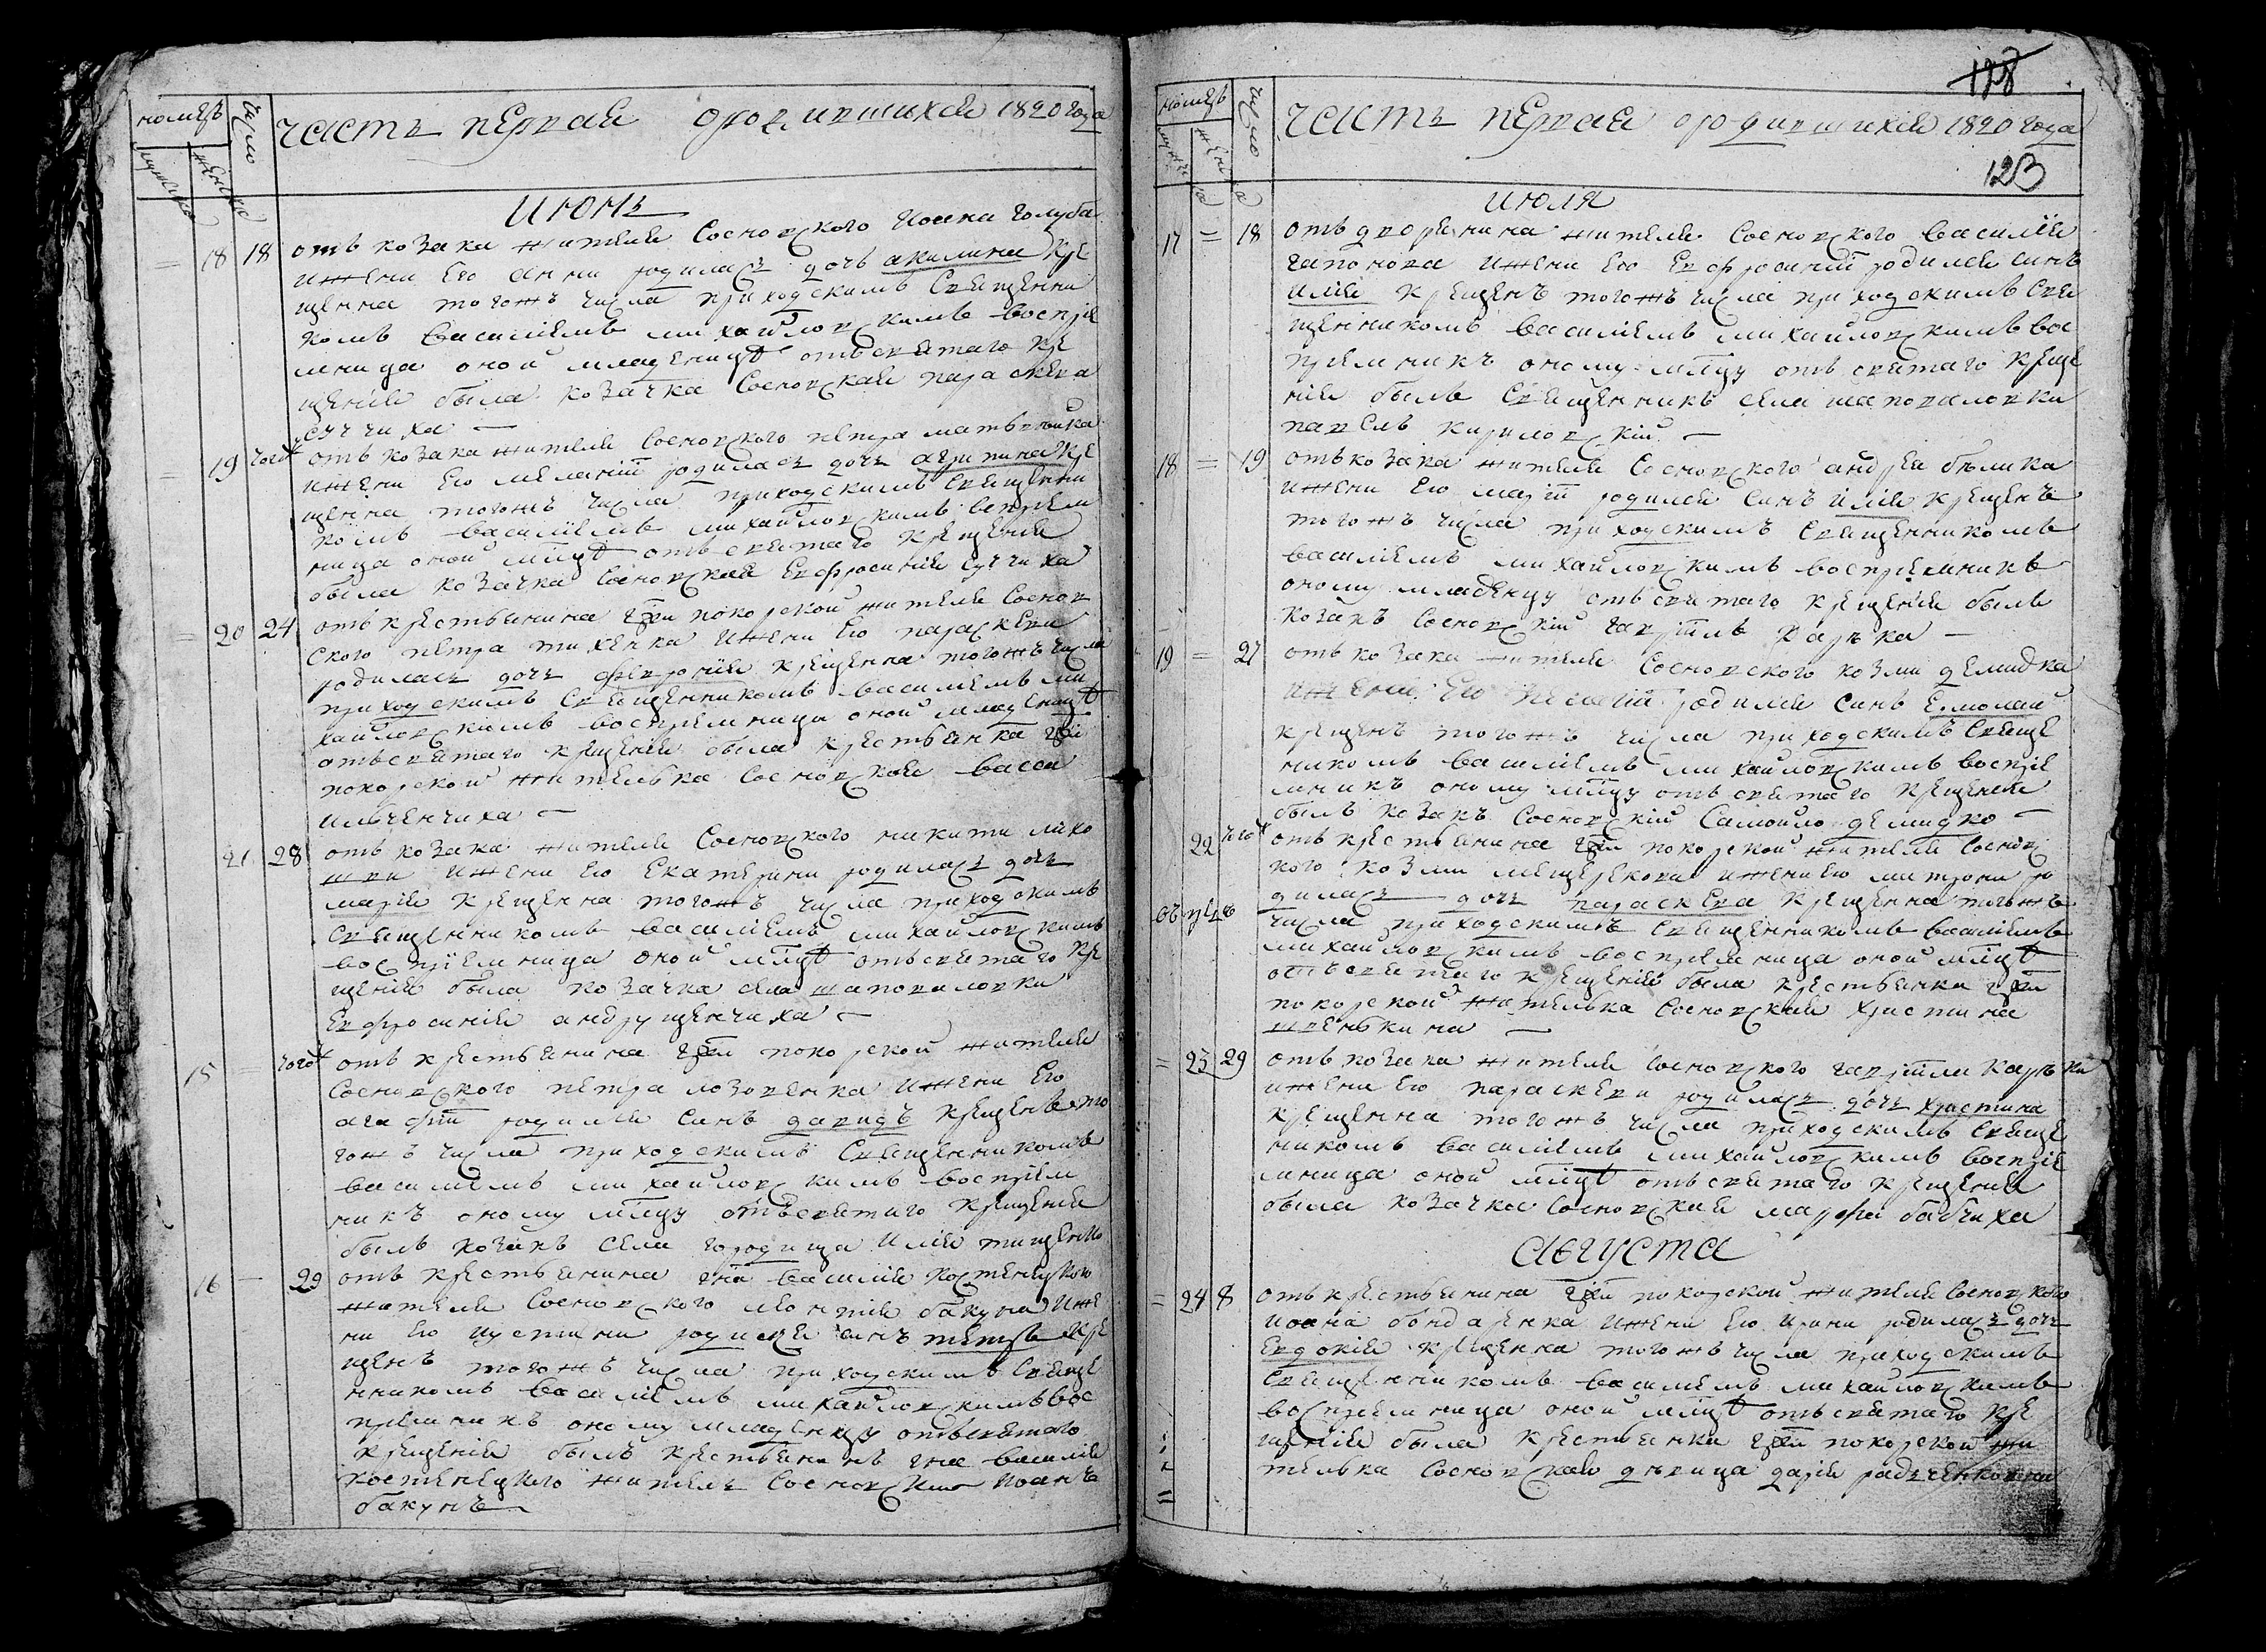 номеръ
число
мужеска
женска
часть первая ородившихся 1820 года
июнь
18 18 отъ козака жителя Сосновского Иоана Голуба
ижени Его анни родилась дочь акилина кре
щенна тогожъ числа приходскимъ Священни
комъ василіемъ михайловскимъ воспріе
мница оной младеницѣ отъ святаго кре
щенія была козачка Сосновская параскева
сучиха
19 тогож отъ козака жителя Сосновского петра матвейка
ижени Его меланіи родилась дочь агрипина кре
щенна тогожъ числа приходскимъ Священни
комъ василіемъ михайловскимъ воспріем
ница оной млнцѣ отъ святаго крещенія
была козачка Сосновская Евфросинія сучиха
20 24 отъ крестьянина гжи покорской жителя Соснов
ского петра тихенка ижени Его параскеви
родилась дочь февронія крещенна тогожъ числа
приходскимъ Священникомъ василіемъ ми
хайловскимъ воспріемница оной младеницѣ
отъ святаго крещенія была крестьянка гжи
покорской жителька Сосновская васса
ильченчиха
21 28 отъ козака жителя Сосновского никити лихо
шви ижени Его Екатерини родилась дочь
марія крещенна тогожъ числа приходскимъ
Священникомъ василіемъ михайловскимъ
воспріемница оной млнцѣ отъ святаго кре
щенія была козачка села шаповаловки
Евфросинія андрущенчиха
15 тогож отъ крестьянина гжи покорской жителя
Сосновского петра лозовенка ижени Его
агафіи родился синъ давидъ крещенъ то
гожъ числа приходскимъ Священникомъ
василіемъ михайловскимъ воспріем
никъ оному млнцу отъ святаго крещенія
былъ козакъ села городища Илія тищенко
16 29 отъ крестьянина гна василія костенецкого
жителя Сосновского леонтія бакуна иже
ни Его иустини родился синъ петръ кре
щенъ тогожъ числа приходскимъ Свяще
нникомъ василіемъ михайловскимъ вос
пріемникъ оному младенцу отъ святаго
крещенія былъ крестьянинъ гна василія
костенецкого житель Сосновскій иоанъ
бакунъ
178
номеръ
число
часть первая ородившихся 1820 года
123
июля
17 = 18 отъ дворянина жителя Сосновского василія
гапонова ижени Его Евфросиніи родился синъ
илія крещенъ тогожъ числа приходскимъ Свя
щенникомъ василіемъ михайловскимъ вос
пріемникъ оному млнцу отъ святаго креще
нія былъ Священникъ села шаповаловки
павелъ кириловскій
18 = 19 отъ козака жителя Сосновского андрея белика
ижени Его маріи родился синъ илія крещенъ
тогожъ числа приходскимъ Священникомъ
василіемъ михайловскимъ воспріемникъ
оному младенцу отъ святаго крещенія былъ
козакъ Сосновскій гавріилъ карпъка
19 = 27 отъ козака жителя Сосновского козми демидка
ижени Его родился синъ Ермолай
крещенъ тогожъ числа приходскимъ Свяще
никомъ василіемъ михайловскимъ воспріе
мникъ оному млнцу отъ святаго крещенія
былъ козакъ Сосновскій Самойло демидко
22 тогож отъ крестьянина гжи покорской жителя Соснов
кого козми мещерякова ижени Его матрони ро
дилась дочь параскева крещенна тогожъ
числа приходскимъ Священникомъ василіемъ
михайловскимъ воспріемница оной млнцѣ
отъ святаго крещенія была крестьянка гжи
покорской жителька Сосновская христина
шпенькина
= 23 29 отъ козака жителя Сосновского гавріила карпъка
ижени Его параскеви родилась дочь христина
крещенна тогожъ числа приходскимъ Свяще
никомъ василіемъ михайловскимъ воспріе
мница оной млнцѣ отъ святаго крещенія
была козачка Сосновская марфа бабчиха
августа
= 24 8 отъ крестьянина гжи покорской жителя Сосновского
иоана бондаренка ижени Его ирини родилась дочь
Евдокія крещенна тогожъ числа приходскимъ
Священникомъ василіемъ михайловскимъ
воспріемница оной млнцѣ отъ святаго кре
щенія была крестьянка гжи покорской жи
телька Сосновская девица дарія радченкова